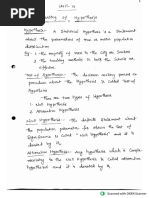 UNIT-IV
Testing of Hypothesis
Hypothesis:- A Statistical Hypothesis is a Statement
about the parameters of one or more population
distribution
Eg :- 1. the majority of men in the City are Smokers
2. the teaching methods in both the Schools are
effective.
Test of Hypothesis:- The decision making procedure
procedure about the Hypothesis is Called Test of
Hypothesis
There are two types of Hypothesis
1. Null Hypothesis
2. Alternative Hypothesis
Null Hypothesis :- The definite Statement about
the population parameter
Significance is Called "Null Hypothesis" and is
denoted by H₀
Alternative Hypothesis:- Any Hypothesis which is Comple-
mentary to the Null Hypothesis is Called Alternative
Hypothesis and is denoted by H₁
Scanned with OKEN Scanner